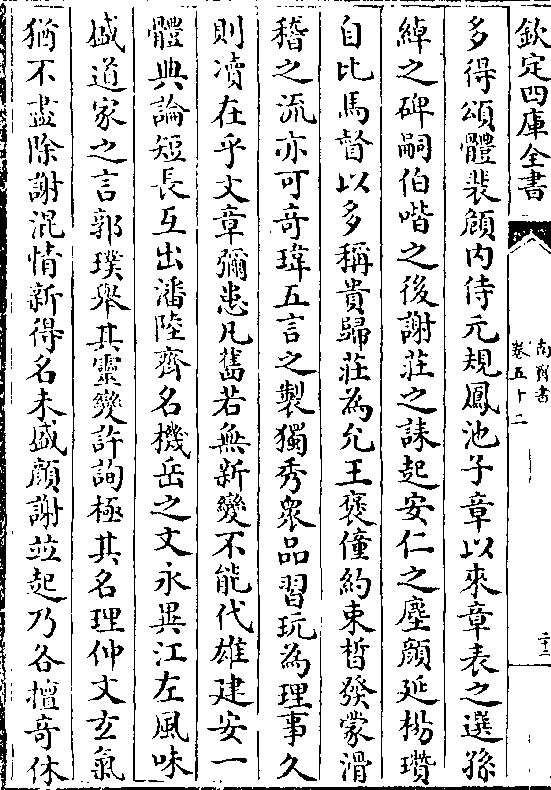 欽定四庫全書
南齊書
卷五十二
二十二
多得頌體裴頠内侍元規鳳池子章以來章表之選孫
綽之碑嗣伯喈之後謝莊之誄起安仁之塵顔延楊瓚
自比馬督以多稱貴歸莊為允王褒僮約束晳發蒙滑
稽之流亦可竒瑋五言之製獨秀衆品習玩為理事久
則凟在乎文章彌患凡舊若無新變不能代雄建安一
體典論短長互出潘陸齊名機岳之文永異江左風味
盛道家之言郭璞舉其靈變許詢極其名理仲文玄氣
猶不盡除謝混情新得名未盛顔謝並起乃各擅竒休